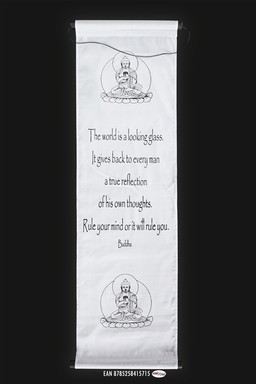 The world is a looking glass.
It gives back to every man
a true reflection
of his own thoughts.
Rule your mind or it will rule you.
Buddha
EAN 8785258415715